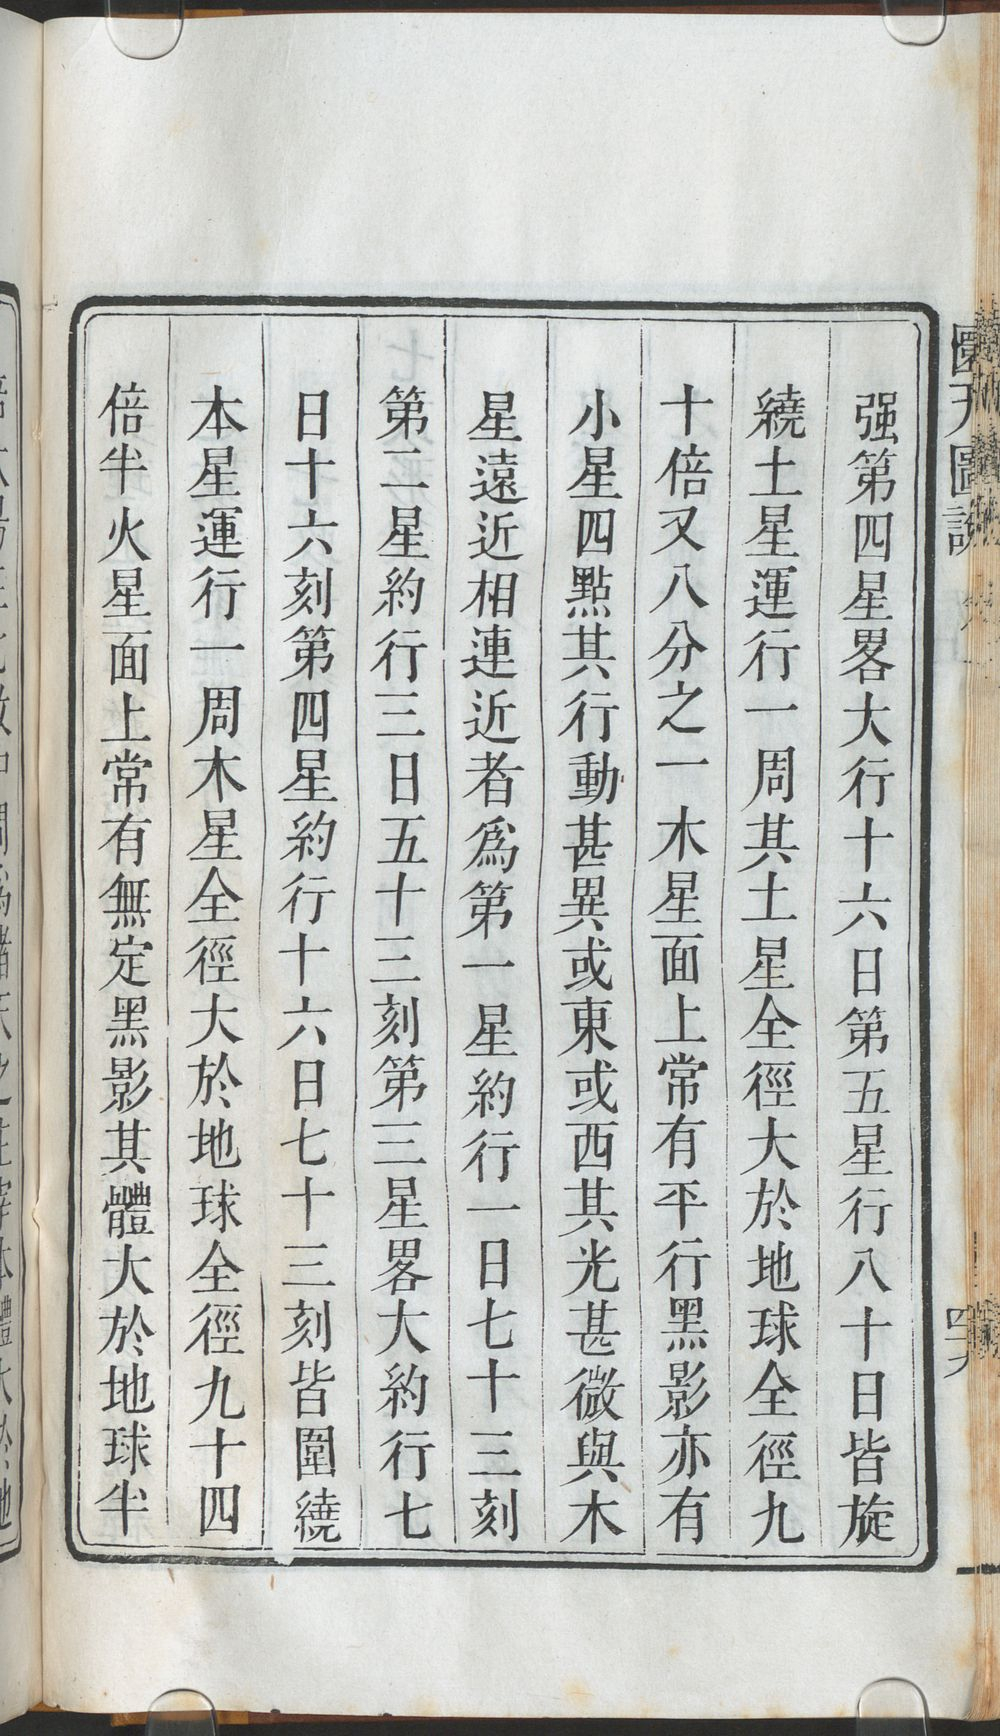 强第四星畧大行十六日第五星行八十日皆旋
繞土星運行一周其土星全徑大於地球全徑九
十倍又八分之一木星面上常有平行黑影亦有
小星四點其行動甚異或東或西其光甚微與木
星遠近相連近者爲第一星約行一日七十三刻
第二星約行三日五十三刻第三星畧大約行七
日十六刻第四星約行十六日七十三刻皆圍繞
本星運行一周木星全徑大於地球全徑九十四
倍半火星面上常有無定黑影其體大於地球半